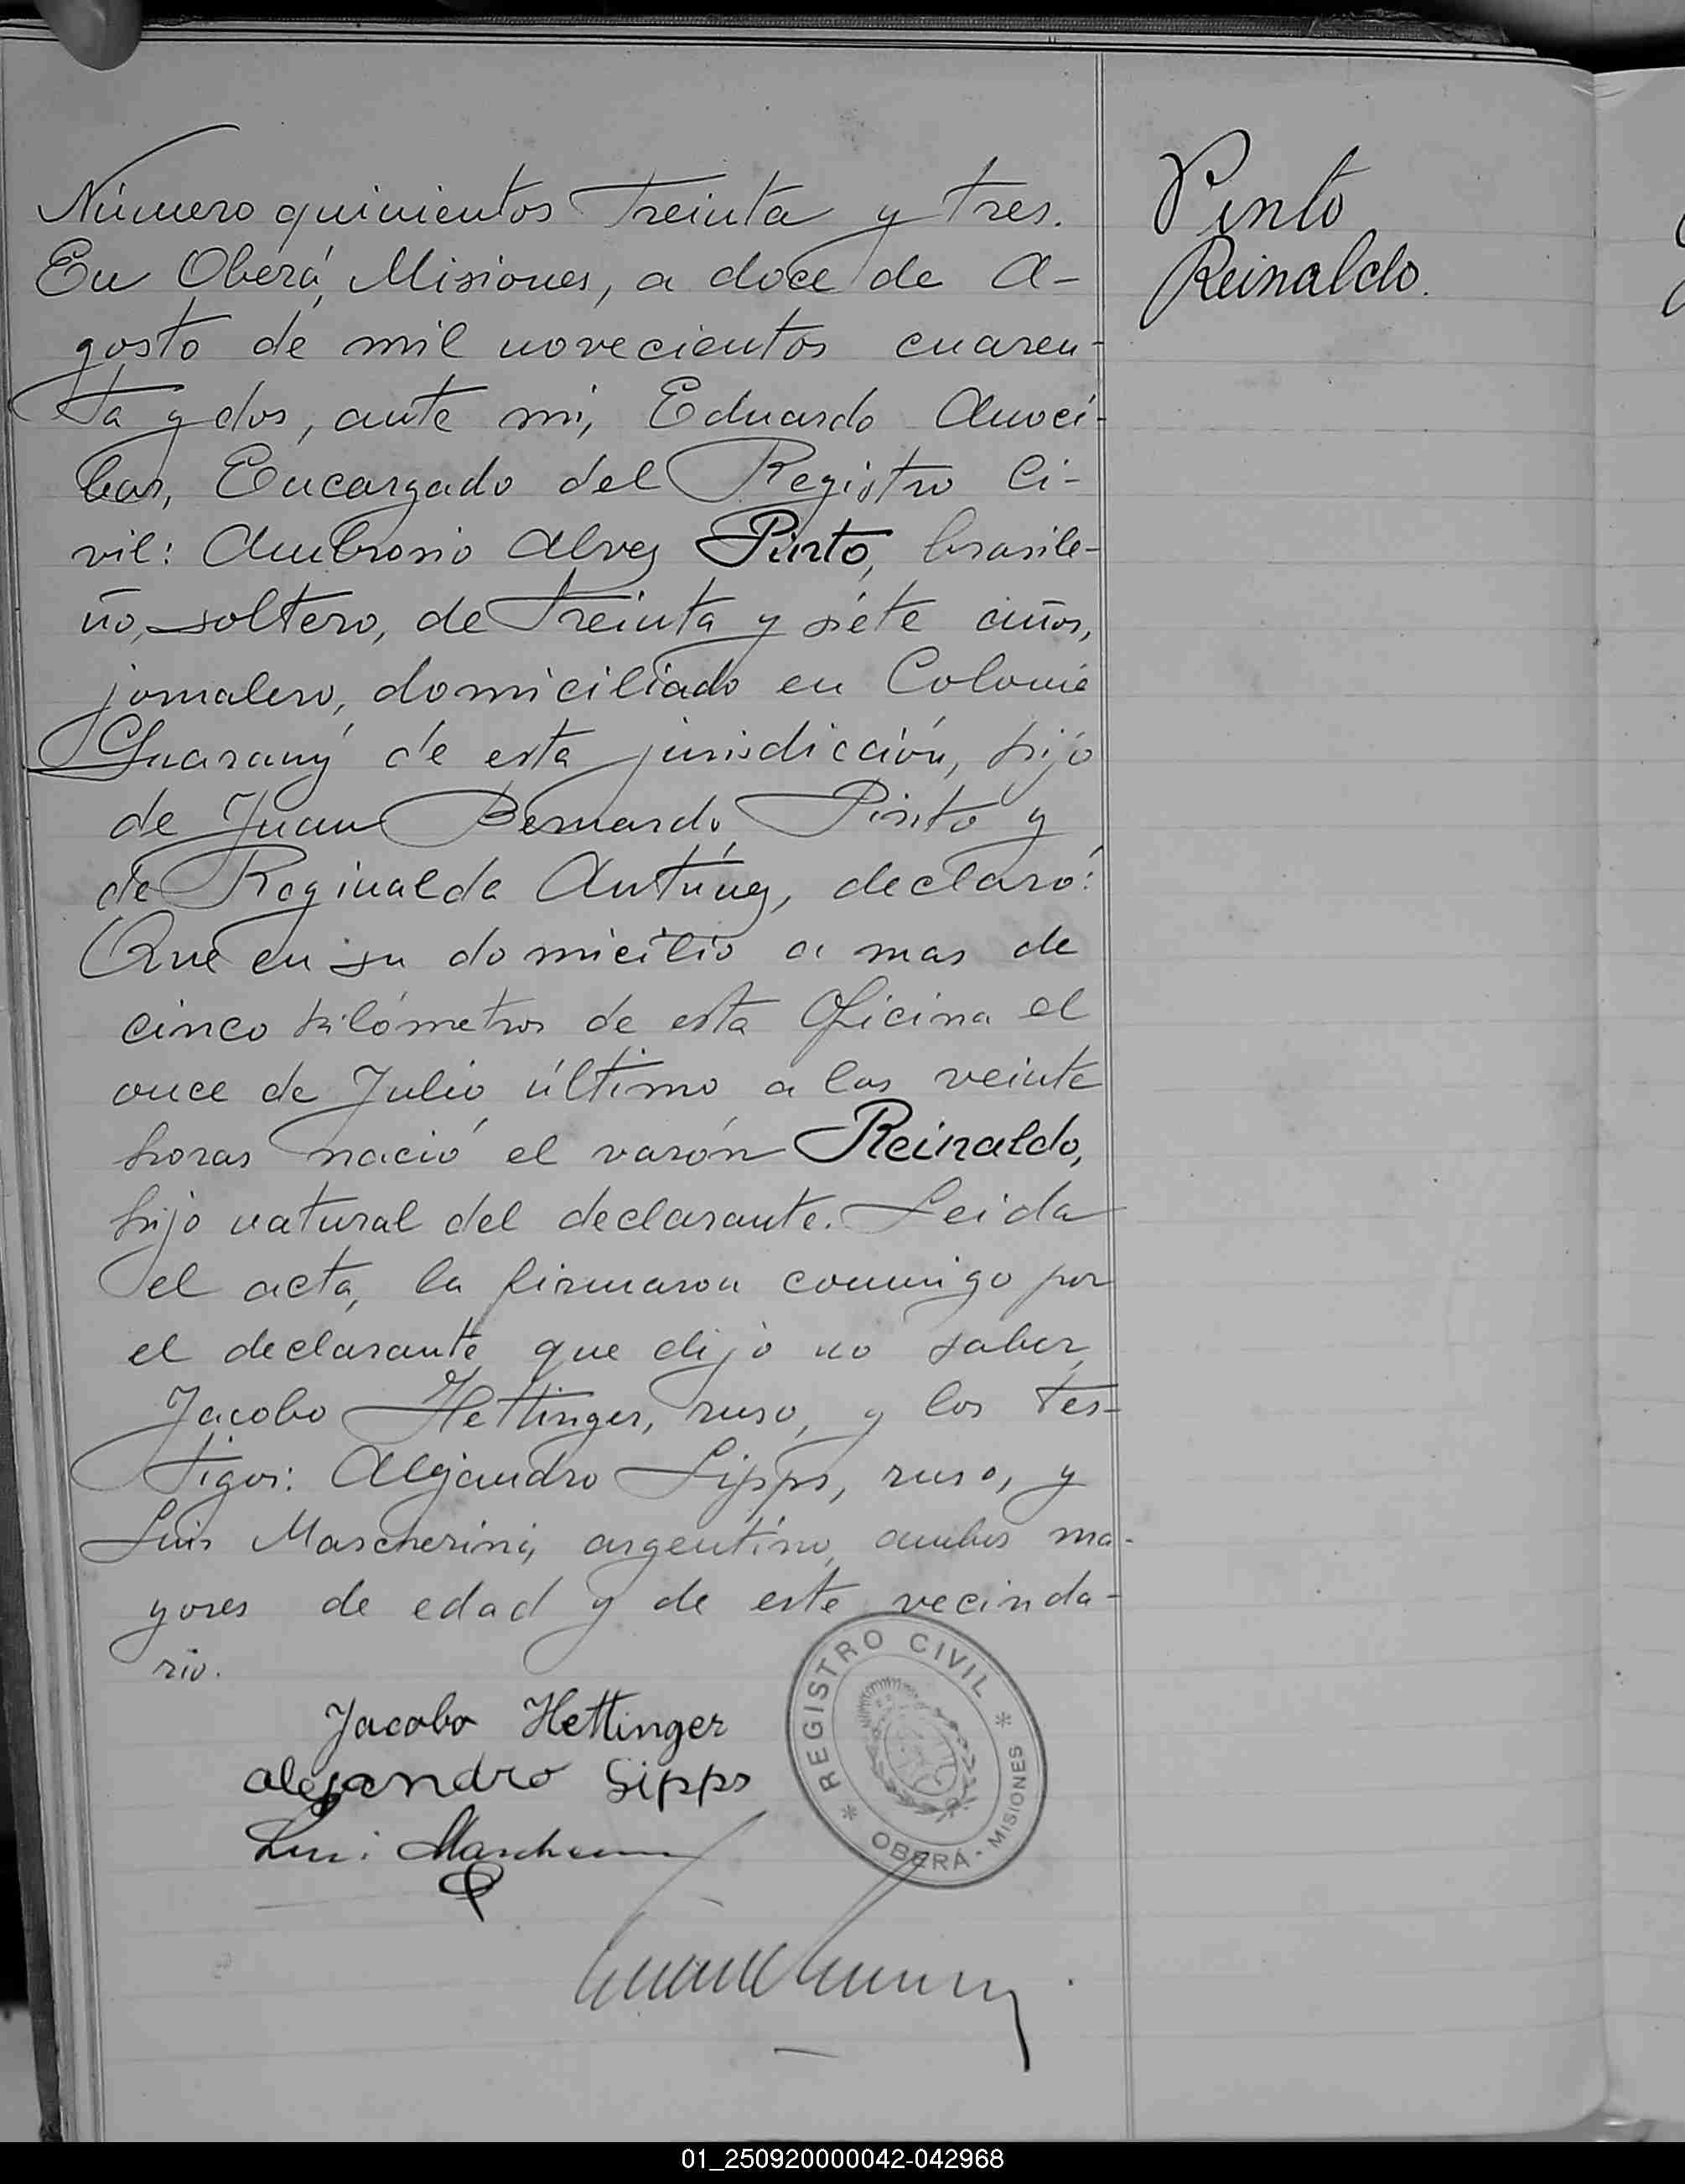 Número quinientos treinta y tres.
En Oberá, Misiones, a doce de A-
gosto de mil novecientos cuaren-
ta y dos, ante mi, Eduardo Anocí-
bar, Encargado del Registro Ci-
vil: Ambrosio Alves Pinto, brasile-
ño, soltero, de treinta y siete años,
jornalero, domiciliado en Colonia
Guarany de esta jurisdicción, hijo
de Juan Bernardo Pinto y
de Reginalda Antúnes, declaró:
Que en su domicilio a mas de
cinco kilómetros de esta Oficina el
once de Julio último a las veinte
horas nació el varón Reinaldo,
hijo natural del declarante. Leida
el acta, la firmaron conmigo por
el declarante que dijo no saber,
Jacobo Hettinger, ruso, y los tes-
tigos: Alejandro Sipps, ruso, y
Luis Mascherini, argentino, ambos ma-
yores de edad y de este vecinda-
rio.
Jacobo Hettinger
alejandro Sipps
Pinto
Reinaldo.
* REGISTRO CIVIL *
OBERÁ - MISIONES
01_250920000042-042968